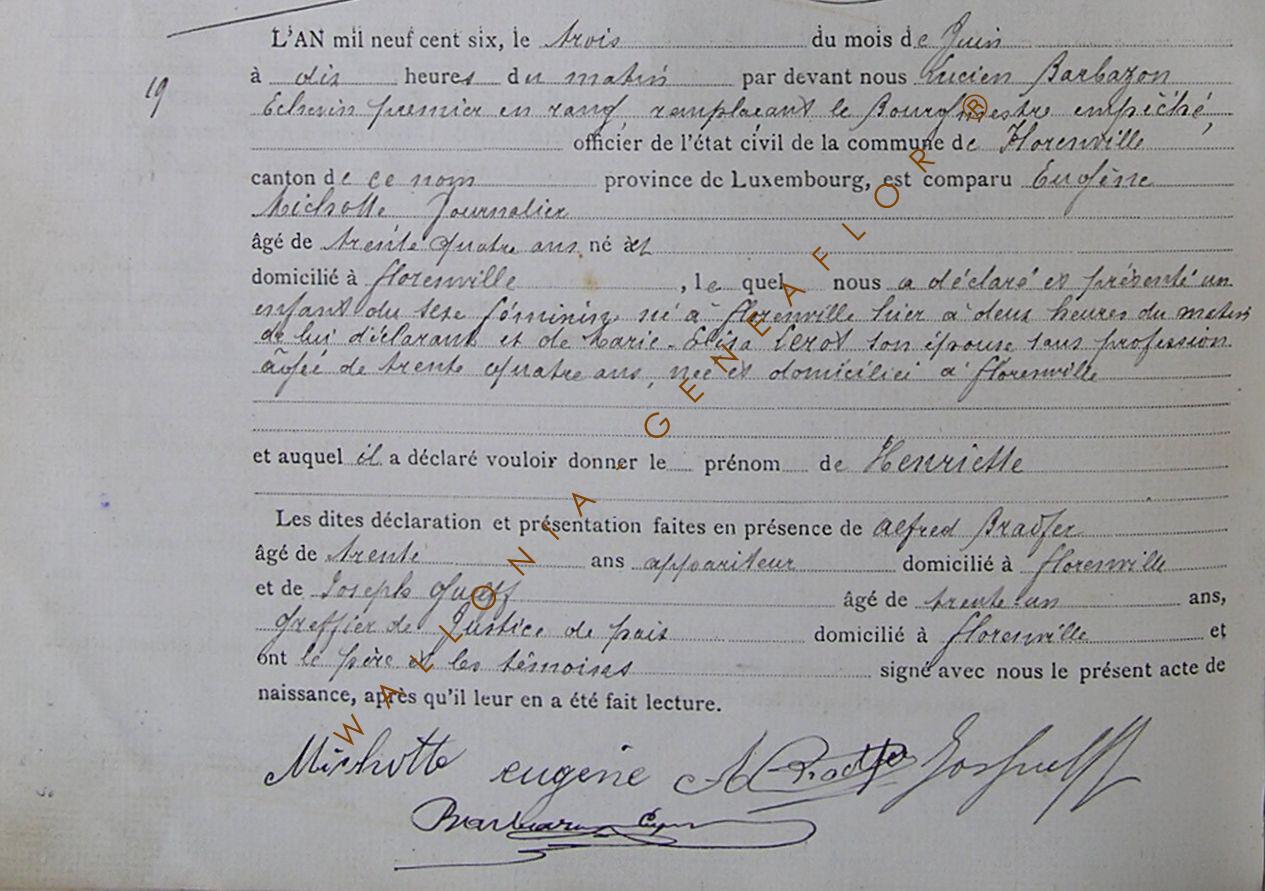 L'AN mil neuf cent six, le trois du mois de Juin
19
à dix heures du matin par devant nous Lucien Barbazon
Echevin premier en rang remplacant le Bourgmestre empêché,
officier de l'état civil de la commune de Florenville
canton de ce nom province de Luxembourg, est comparu Eugène
Michotte Journalier
âgé de trente quatre ans, né à et
domicilié à Florenville, le quel nous a déclaré et présenté un
enfant du sexe féminin né à Florenville hier à deux heures du matin
de lui déclarant et de Marie-Elisa Lerot son épouse sans profession
âgée de trente quatre ans, née et domiciliée à Florenville
et auquel il a déclaré vouloir donner le prénom de Henriette
Les dites déclaration et présentation faites en présence de Alfred Bradfer
âgé de trente ans appariteur domicilié à Florenville
et de Joseph âgé de trente-un ans,
Greffier de Justice de paix domicilié à Florenville et
ont le père et les témoins signé avec nous le présent acte de
naissance, après qu'il leur en a été fait lecture.
Michotte eugène A Bradfer
WALLONIA - GENEAFLOR ®